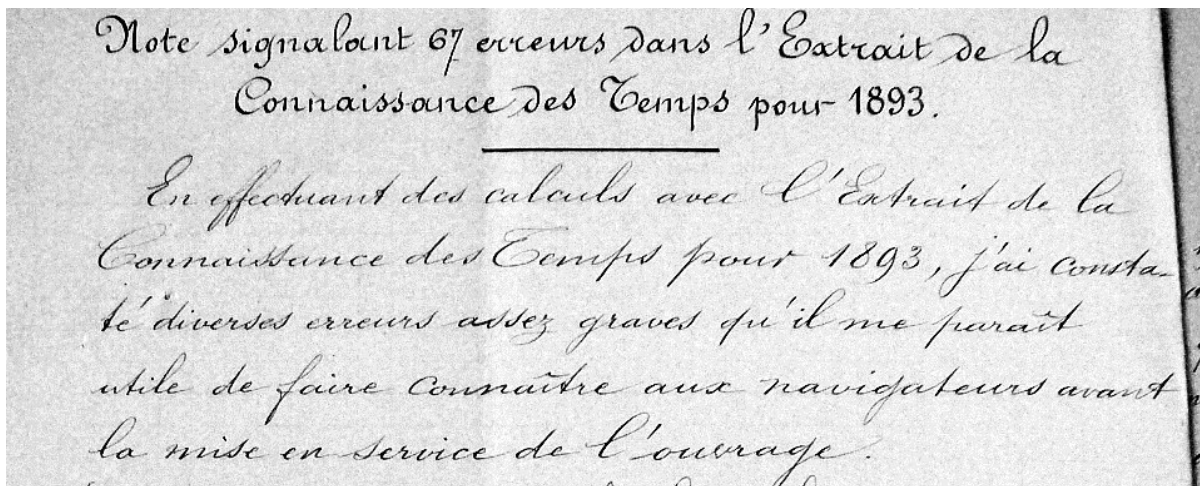 Note signalant 67 erreurs dans l'Extrait de la
Connaissance des Temps pour 1893.
En effectuant des calculs avec l'Extrait de la
Connaissance des Temps pour 1893, j'ai consta-
té diverses erreurs assez graves qu'il me paraît
utile de faire connaître aux navigateurs avant
la mise en service de l'ouvrage.